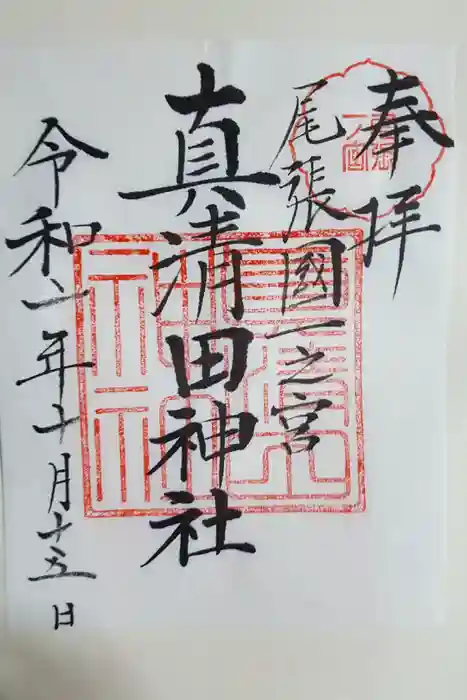 奉拝
尾張國一之宮
真清田神社
令和二年十月十五日